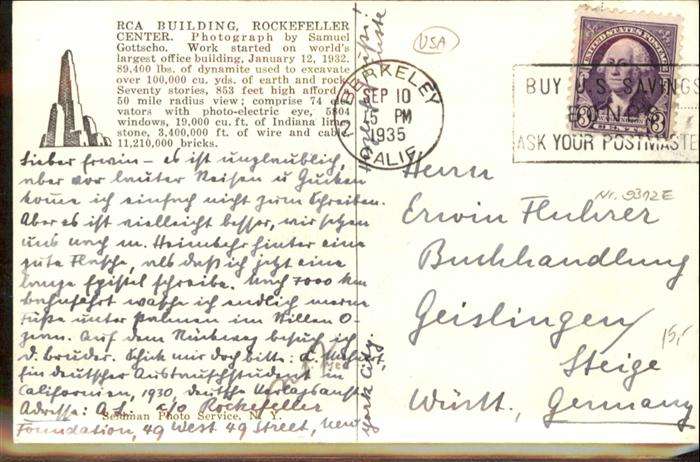 RCA BUILDING, ROCKEFELLER
CENTER. Photograph by Samuel
Gottscho. Work started on world's
largest office building, January 12, 1932.
89,400 lbs. of dynamite used to excavate
over 100,000 cu. yds. of earth and rock
Seventy stories, 853 feet high afford
50 mile radius view; comprise 74
vators with photo-electric eye, 5804
windows, 19,000 cu. ft. of Indiana lime
stone, 3,400,000 ft. of wire and cable
11,210,000 bricks.
Lieber Erwin – es ist unglaublich,
aber vor lauter Reisen u Gucken
komme ich einfach nicht zum Schreiben.
Aber es ist vielleicht besser, wir setzen
uns nach m. Heimkehr hinter eine
gute Flasche, als daß ich jetzt eine
lange Epistel schreibe. Nach 7000 km
Bahnfahrt wasche ich endlich meine
Füße unter Palmen im Stillen O-
zean. Auf dem Rückweg besuch ich
d. Bruder. Schick mir doch bitte:
Ein deutscher Austauschstudent in
Californien, 1930, deutsche Verlagsanst.
Adresse: A. Z. c/o Rockefeller
Foundation, 49 West 49 Street, New
York City.
Seidman Photo Service, N. Y.
USA
BERKELEY
SEP 10
5 PM
1935
CALIF.
BUY U.S. SAVINGS
BONDS
ASK YOUR POSTMASTER
UNITED STATES POSTAGE
3 3
Herrn
Nr. 9312E
Erwin Fluhrer
Buchhandlung
Geislingen/
Steige
15,-
Württ., Germany